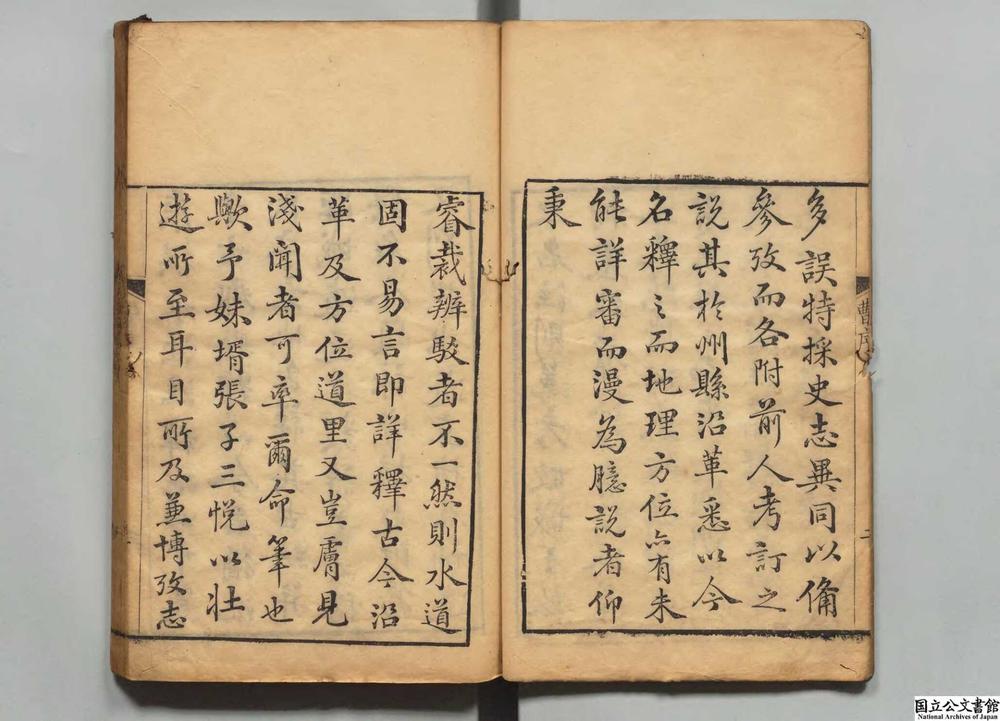 多誤特採史志異同以俻
參攷而各附前人考訂之
說其於州縣沿革悉以今
名釋之而地理方位亦有未
能詳審而漫為臆說者仰
秉
曹序
二
睿裁辨駁者不一然則水道
固不易言即詳釋古今沿
革及方位道里又豈膚見
淺聞者可率爾命筆也
歟予妹壻張子三悅以壯
遊所至耳目所及兼博攷志
国立公文書館
National Archives of Japan